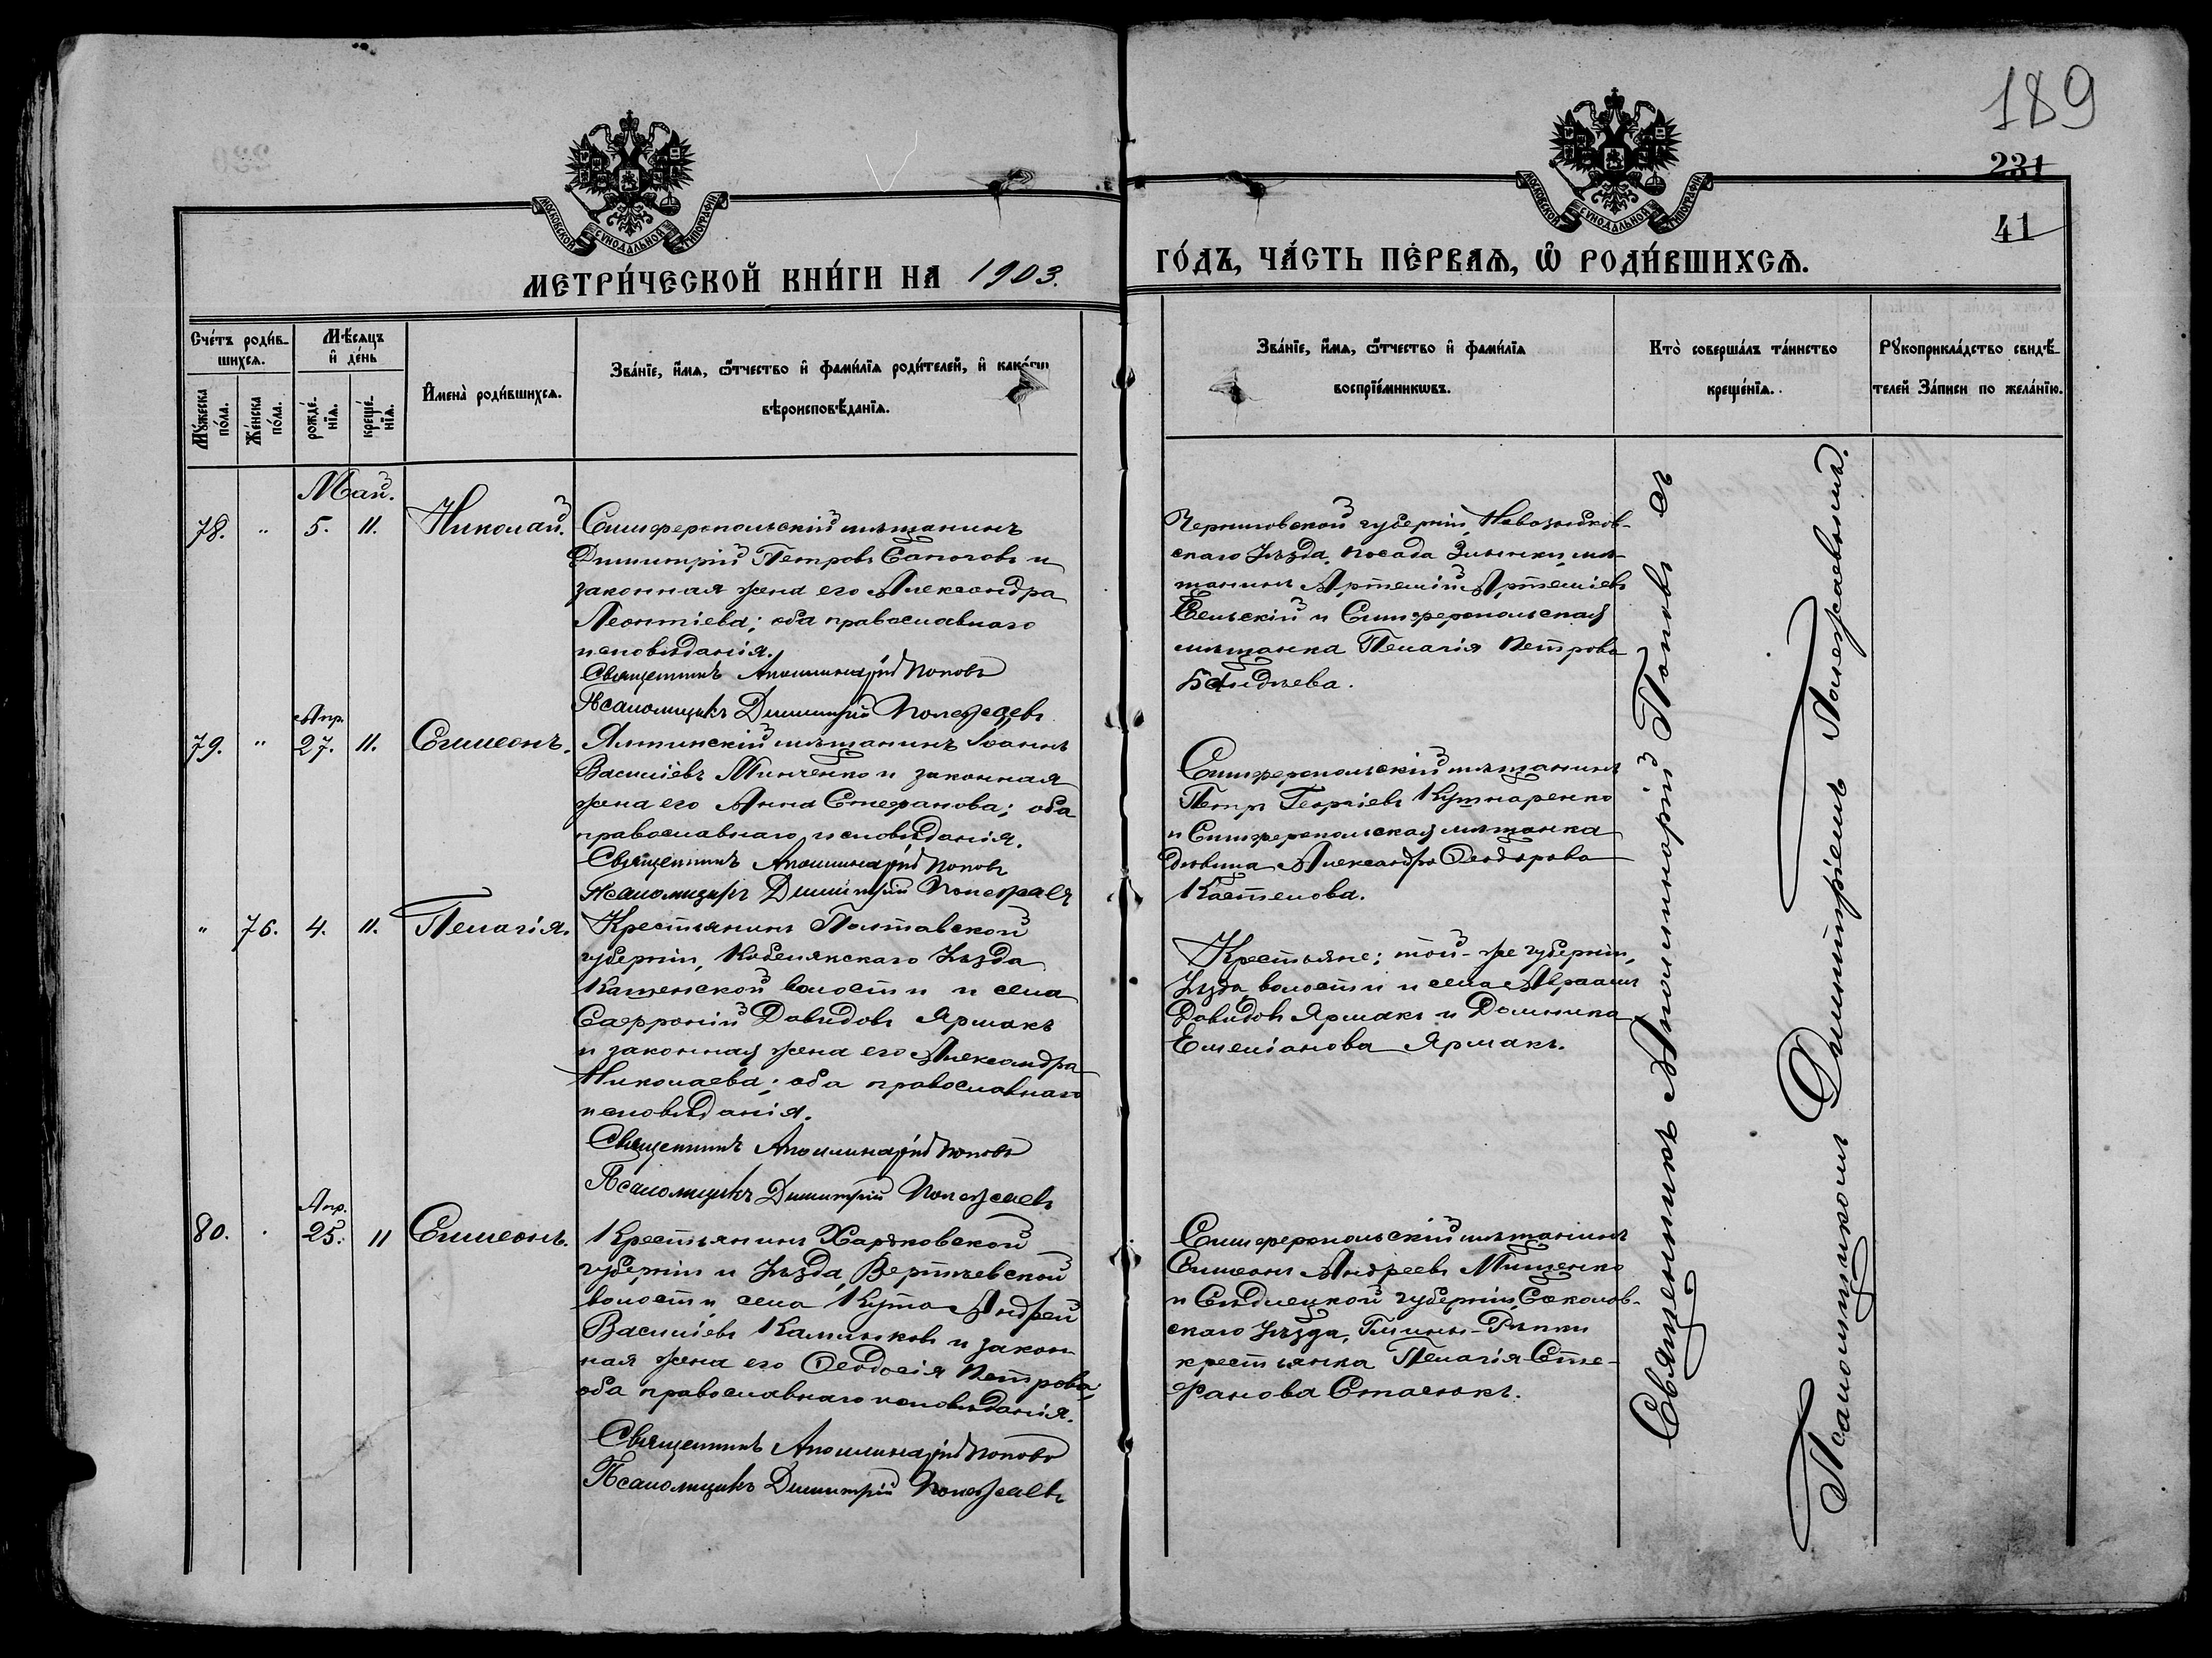 189
231
41
МОСКОВСКОЙ СѴНОДАЛЬНОЙ ТИПОГРАФІИ
МОСКОВСКОЙ СѴНОДАЛЬНОЙ ТИПОГРАФІИ
МЕТРИ́ЧЕСКОЙ КНИ́ГИ НА 1903.
ГО́ДЪ, ЧА́СТЬ ПЕ́РВАѦ, Ѡ҆ РОДИ́ВШИХСѦ.
Сче́тъ роди́в-
шихсѧ.
Мꙋ́жеска по́ла.
Же́нска по́ла.
Мѣ́сѧцъ
и҆ де́нь
рожде́-
нїѧ.
креще́-
нїѧ.
И҆мена̀ роди́вшихсѧ.
Зва́нїе, и҆́мѧ, ѻ҆́тчество и҆ фами́лїѧ роди́телей, и҆ како́гѡ
вѣроисповѣ́данїѧ.
Зва́нїе, и҆́мѧ, ѻ҆́тчество и҆ фами́лїѧ
воспрїе́мникѡвъ.
Кто̀ соверша́лъ та́инство
креще́нїѧ.
Рꙋкоприкла́дство свидѣ́-
телей за́писи по жела́нїю.
Май.
78. " 5. 11. Николай.
Симферопольскій мѣщанинъ
Димитрій Петровъ Сапоговъ и
законная жена его Александра
Леонтіева; оба православнаго
исповѣданія.
Священникъ Аполлинарій Поповъ
Псаломщикъ Димитрій Полежаевъ
Черниговской губерніи, Новозыбков-
скаго уѣзда, посада Злынки, мѣ-
щанинъ Артемій Артеміевъ
Бѣльскій и Симферопольская
мѣщанка Пелагія Петрова
Апр.
79. " 27. 11. Симеонъ.
Ялтинскій мѣщанинъ Іоаннъ
Василіевъ Минченко и законная
жена его Анна Стефанова; оба
православнаго исповѣданія.
Священникъ Аполлинарій Поповъ
Псаломщикъ Димитрій Полежаевъ
Симферопольскій мѣщанинъ
Петръ Георгіевъ Кушнаренко
и Симферопольская мѣщанка
дѣвица Александра Ѳеодорова
" 76. 4. 11. Пелагія.
Крестьянинъ Полтавской
губерніи, Кобелякскаго уѣзда
волости и села
Сафроній Давидовъ Ярмакъ
и законная жена его Александра
Николаева; оба православнаго
исповѣданія.
Священникъ Аполлинарій Поповъ
Псаломщикъ Димитрій Полежаевъ
Крестьяне; той-же губерніи,
уѣзда, волости и села Авраамъ
Давидовъ Ярмакъ и Домника
Емеліанова Ярмакъ.
Апр.
80. . 25. 11 Симеонъ.
Крестьянинъ Харьковской
губерніи и уѣзда,
волости, села Кута Андрей
Василіевъ Калюжковъ и закон-
ная жена его Ѳеодосія Петрова;
оба православнаго исповѣданія.
Священникъ Аполлинарій Поповъ
Псаломщикъ Димитрій Полежаевъ
Симферопольскій мѣщанинъ
Симеонъ Андреевъ Мищенко
и Сѣдлецкой губерніи, Соколов-
скаго уѣзда, Гмины-Рѣпки
крестьянка Пелагія Сте-
фанова Стасюкъ.
Священникъ Аполлинарій Поповъ съ
Псаломщикомъ Димитріемъ Полежаевымъ.